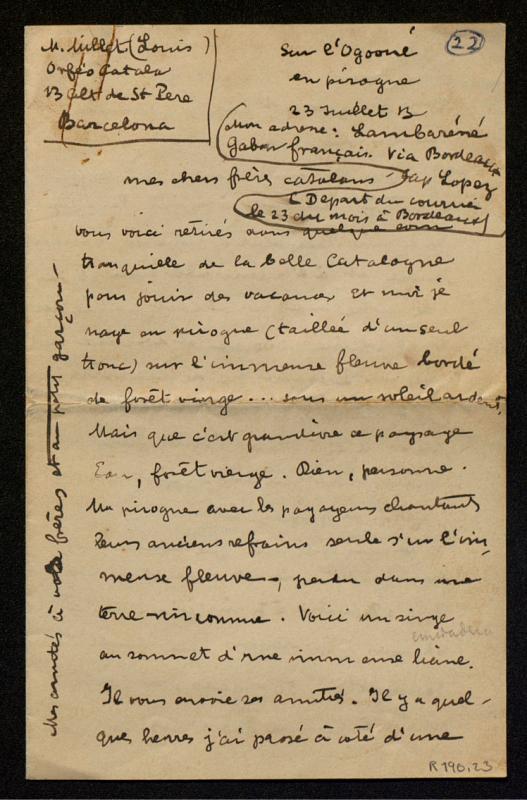 M. Millet (Louis)
Orféo Catala
13 Alt de St Pere
Barcelona
22
Sur l'Ogooué
en pirogue
23 Juillet 13
(Mon adresse: Lambaréné
Gabon français. Via Bordeaux
Cap Lopez
mes chers frères catalans
(Départ du courrier
le 23 du mois à Bordeaux)
vous voici retirés dans quelque coin
tranquille de la belle Catalogne
pour jouir des vacances et moi je
nage en pirogue (taillée d'un seul
tronc) sur l'immense fleuve bordé
de forêt vierge... sous un soleil ardent.
Mais que c'est grandiose ce paysage
Eau, forêt vierge. Rien, personne.
Ma pirogue avec les pagayeurs chantants
leurs anciens refrains seule sur l'im-
mense fleuve, perdu dans une
terre inconnue. Voici un singe
au sommet d'une immense liane.
Il vous envoie ses amitiés. Il y a quel-
ques heures j'ai passé à côté d'une
Mes amitiés à vos frères et au petit garçon
R 190.23